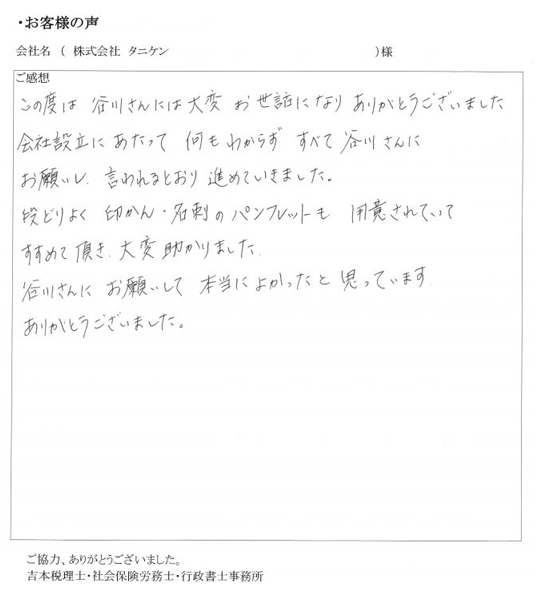 ・お客様の声
会社名 （ 株式会社 タニケン ）様
ご感想
この度は 谷川さんには大変 お世話になり ありがとうございました
会社設立にあたって 何もわからず すべて谷川さんに
お願いし、言われるとおり 進めていきました。
段どりよく 印かん・名刺のパンフレットも 用意されていて
すすめて頂き、大変助かりました
谷川さんに お願いして 本当によかったと思っています
ありがとうございました。
ご協力、ありがとうございました。
吉本税理士・社会保険労務士・行政書士事務所